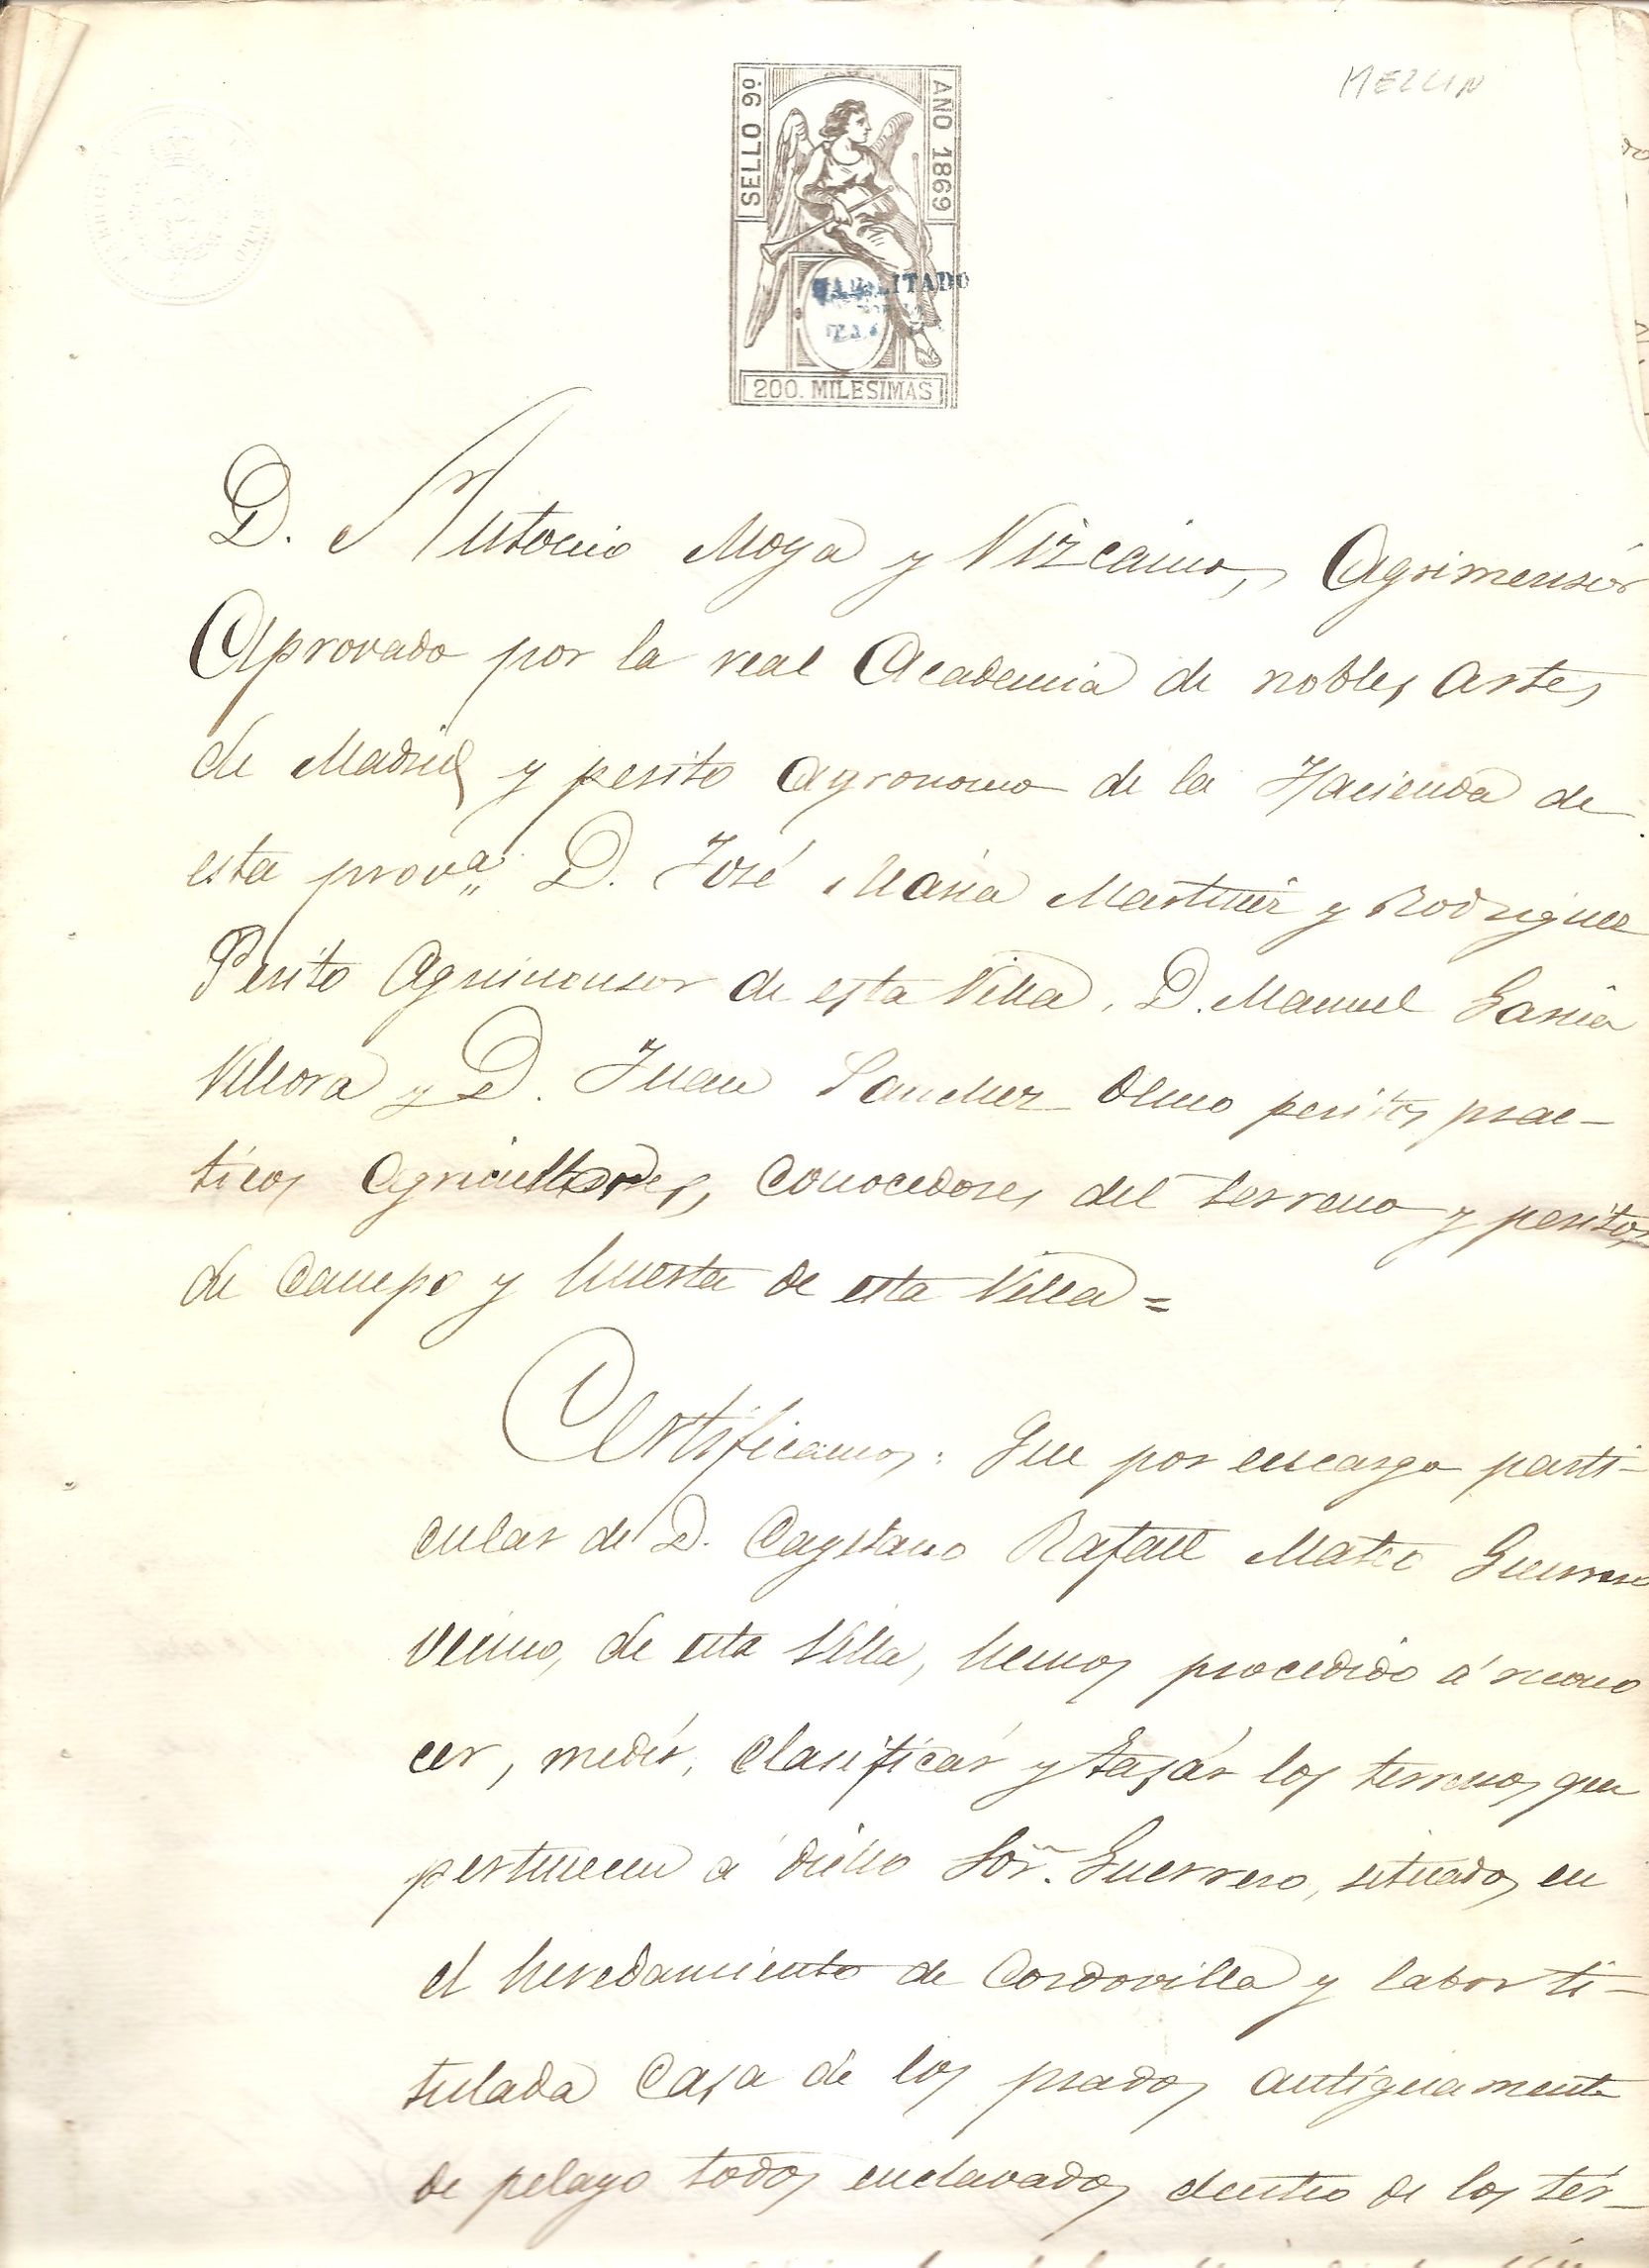 SELLO 9º
AÑO 1869
HABILITADO
200. MILESIMAS
D. Antonio Moya y Vizcaino, Agrimensór
Aprovado por la real Academia de nobles Artes
de Madrid y perito Agronomo de la Hacienda de
esta provª. D. José Maria Martinez y Rodriguez
Perito Agrimensor de esta Villa, D. Manuel Garcia
Villora y D. Juan Sanchez Olmo peritos prac-
ticos Agricultores, Conocedores del terreno y peritos
de Campo y huerta de esta Villa =
Certificamos: Que por encargo parti-
cular de D. Cayetano Rafael Mateo Guerrero
vecino, de esta Villa, hemos procedido á recono
cer, medír, Clasificár y tasár los terrenos que
pertenecen á dicho Sōr. Guerrero, situados en
el heredamiento de Cordovilla y labor ti-
tulada Casa de los prados antiguamente
de pelayo todos enclavados dentro de los tér-